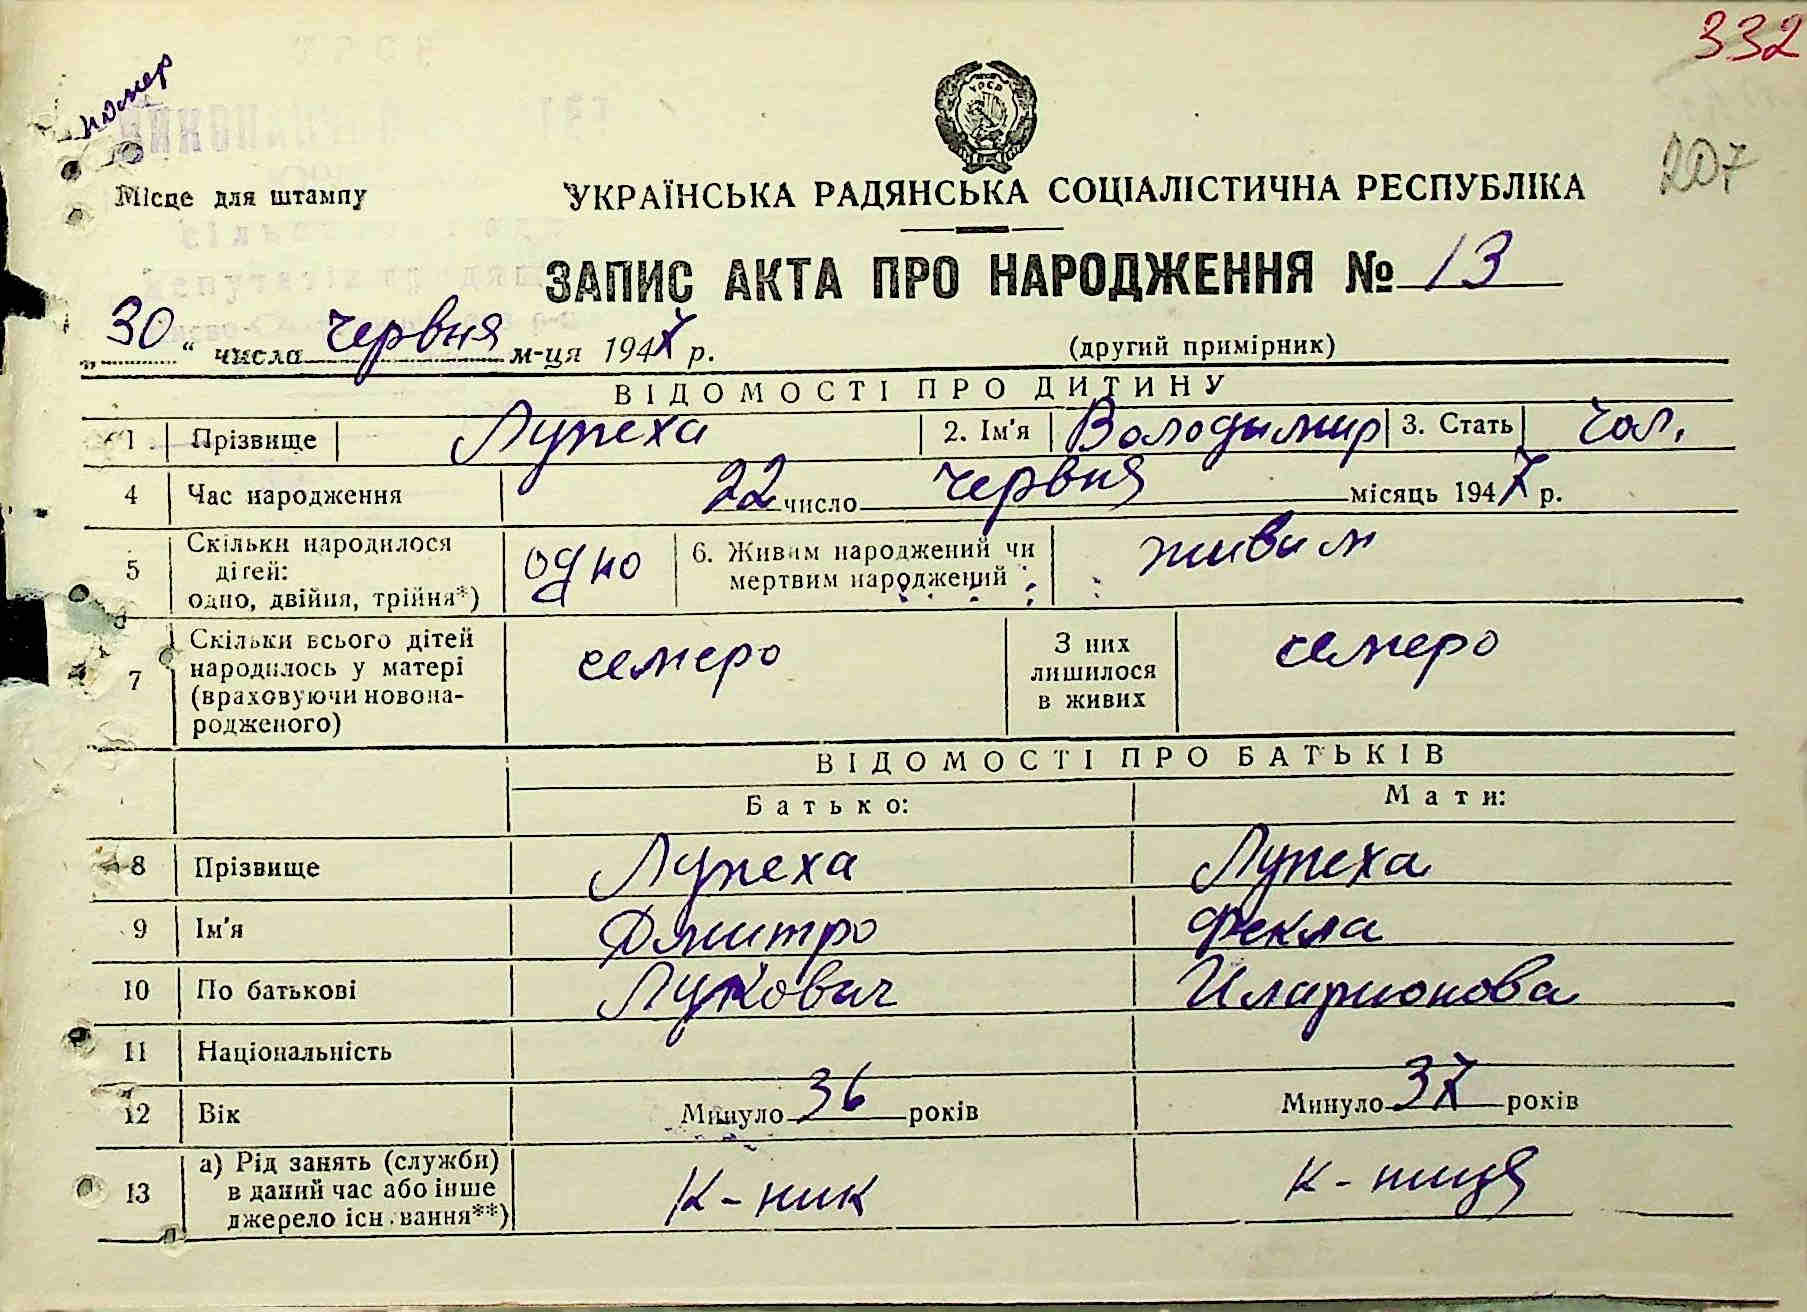 332
помер
207
Місце для штампу
УКРАЇНСЬКА РАДЯНСЬКА СОЦІАЛІСТИЧНА РЕСПУБЛІКА
ЗАПИС АКТА ПРО НАРОДЖЕННЯ № 13
„30“ числа червня м-ця 1947 р.
(другий примірник)
ВІДОМОСТІ ПРО ДИТИНУ
1 Прізвище Лупеха 2. Ім'я Володымир 3. Стать чол.
4 Час народження 22 число червня місяць 1947 р.
5 Скільки народилося дітей: одно, двійня, трійня*) одно 6. Живим народжений чи мертвим народжений живим
7 Скільки всього дітей народилось у матері (враховуючи новонародженого) семеро З них лишилося в живих семеро
ВІДОМОСТІ ПРО БАТЬКІВ
Батько: Мати:
8 Прізвище Лупеха Лупеха
9 Ім'я Дмитро Фекла
10 По батькові Лукович Иларионова
11 Національність
12 Вік Минуло 36 років Минуло 37 років
13 а) Рід занять (служби) в даний час або інше джерело існ вання**) К-ник К-ниця